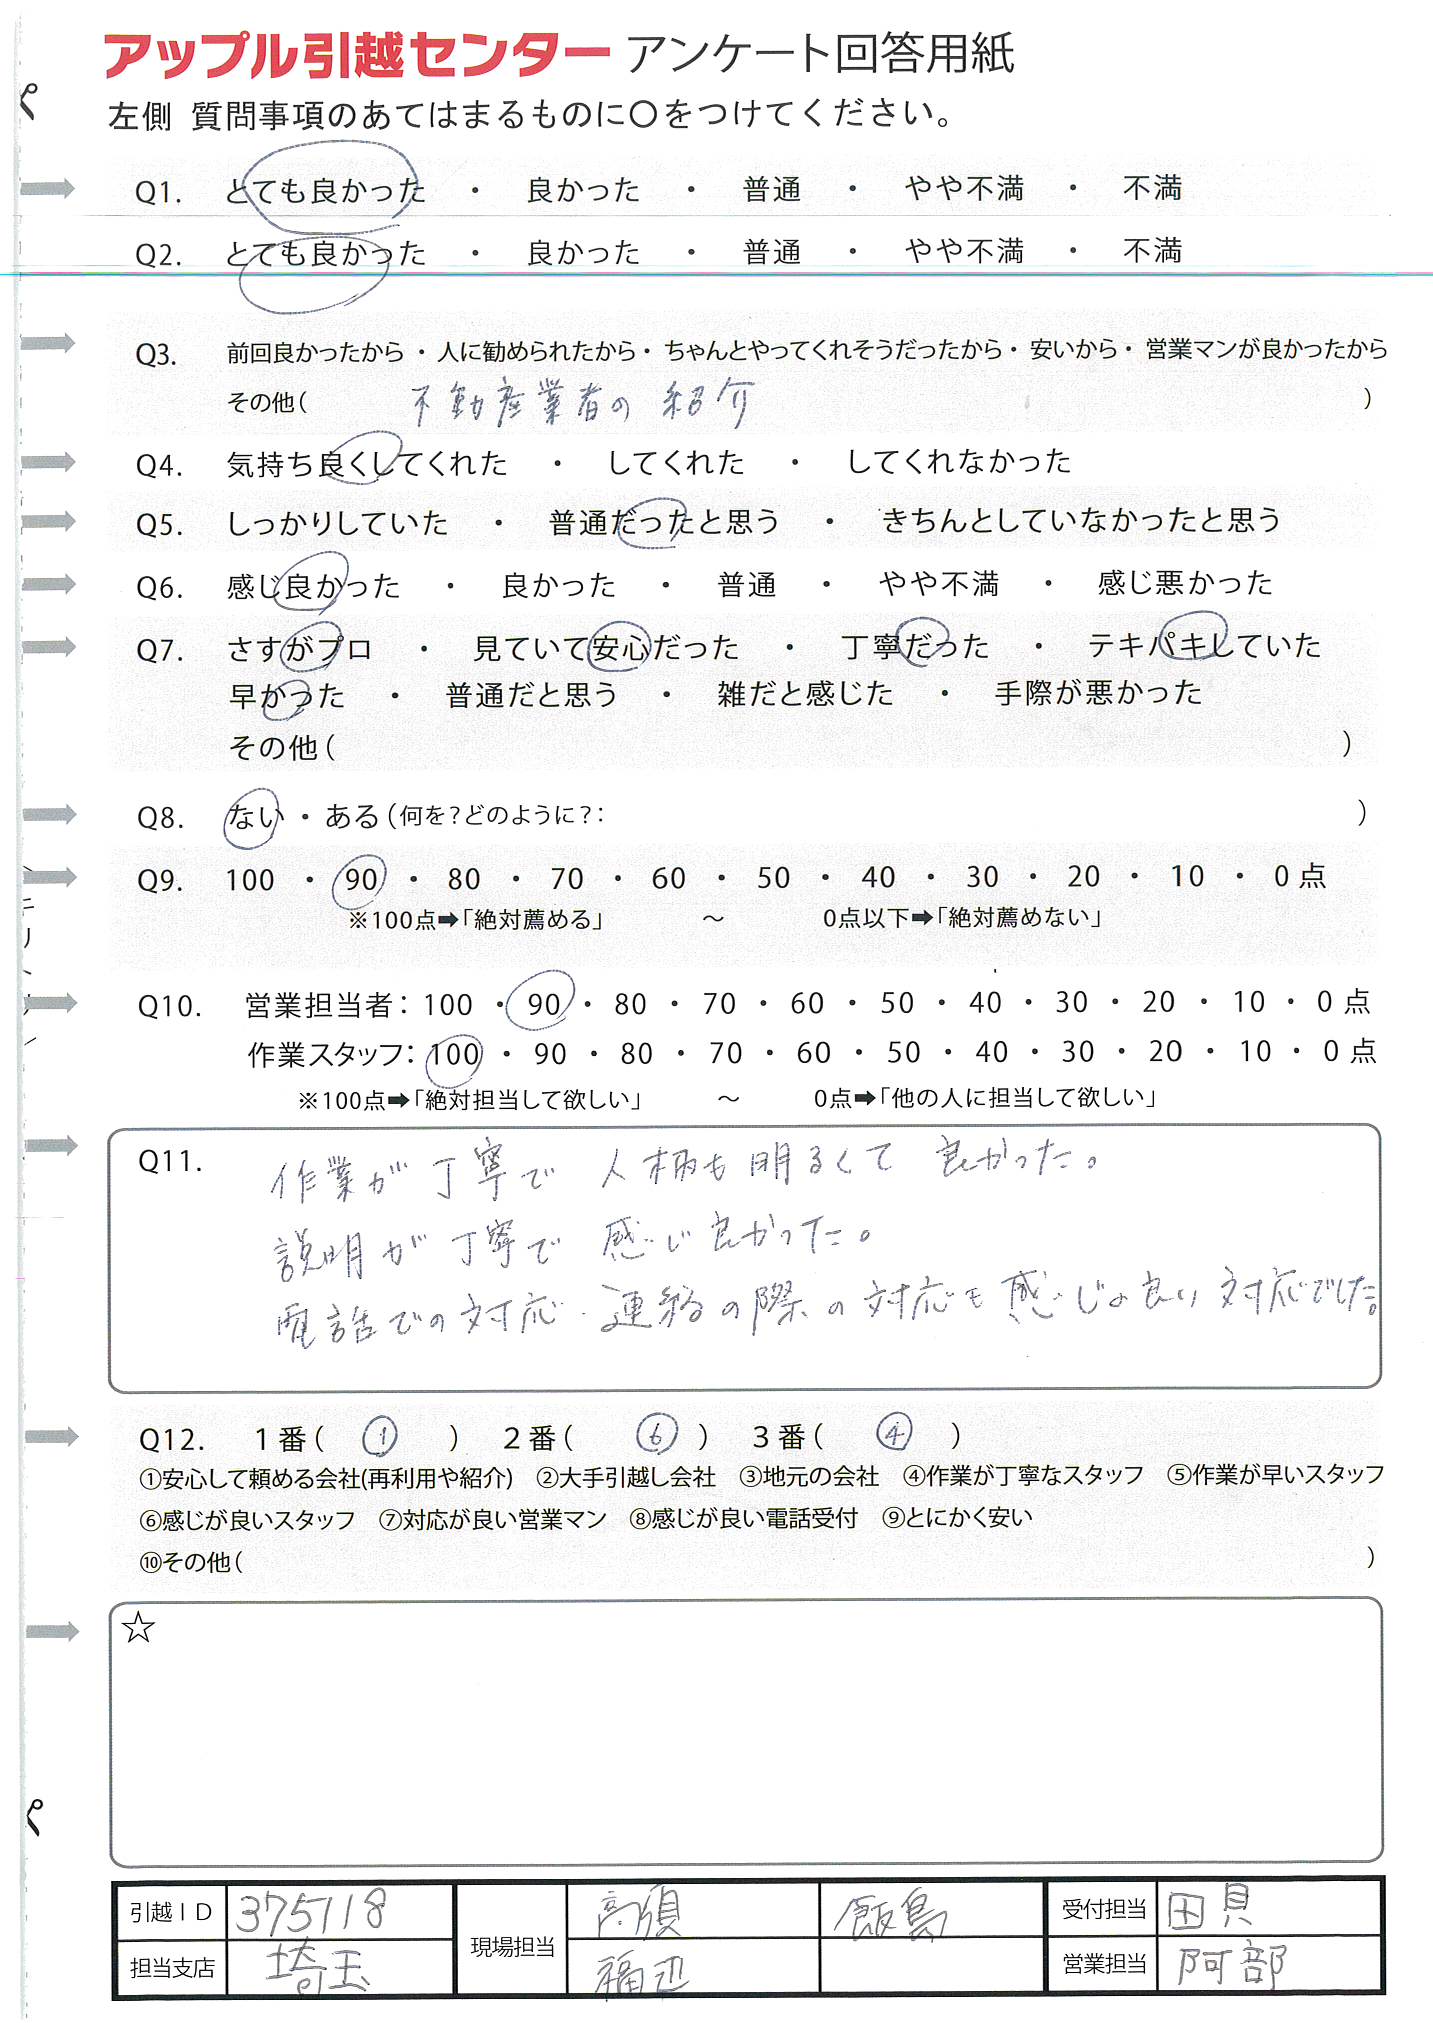 アップル引越センター アンケート回答用紙
左側 質問事項のあてはまるものに〇をつけてください。
Q1. とても良かった ・ 良かった ・ 普通 ・ やや不満 ・ 不満
Q2. とても良かった ・ 良かった ・ 普通 ・ やや不満 ・ 不満
Q3. 前回良かったから ・ 人に勧められたから ・ ちゃんとやってくれそうだったから ・ 安いから ・ 営業マンが良かったから
その他( 不動産業者の 紹介 )
Q4. 気持ち良くしてくれた ・ してくれた ・ してくれなかった
Q5. しっかりしていた ・ 普通だったと思う ・ きちんとしていなかったと思う
Q6. 感じ良かった ・ 良かった ・ 普通 ・ やや不満 ・ 感じ悪かった
Q7. さすがプロ ・ 見ていて安心だった ・ 丁寧だった ・ テキパキしていた
早かった ・ 普通だと思う ・ 雑だと感じた ・ 手際が悪かった
その他( )
Q8. ない ・ ある(何を?どのように?: )
Q9. 100 ・ 90 ・ 80 ・ 70 ・ 60 ・ 50 ・ 40 ・ 30 ・ 20 ・ 10 ・ 0 点
※100点➡「絶対薦める」 ～ 0点以下➡「絶対薦めない」
Q10. 営業担当者: 100 ・ 90 ・ 80 ・ 70 ・ 60 ・ 50 ・ 40 ・ 30 ・ 20 ・ 10 ・ 0 点
作業スタッフ: 100 ・ 90 ・ 80 ・ 70 ・ 60 ・ 50 ・ 40 ・ 30 ・ 20 ・ 10 ・ 0 点
※100点➡「絶対担当して欲しい」 ～ 0点➡「他の人に担当して欲しい」
Q11. 作業が丁寧で 人柄も明るくて 良かった。
説明が丁寧で 感じ良かった。
電話での対応・連絡の際の対応も感じの良い対応でした。
Q12. 1番( ① ) 2番( ⑥ ) 3番( ④ )
①安心して頼める会社(再利用や紹介) ②大手引越し会社 ③地元の会社 ④作業が丁寧なスタッフ ⑤作業が早いスタッフ
⑥感じが良いスタッフ ⑦対応が良い営業マン ⑧感じが良い電話受付 ⑨とにかく安い
⑩その他( )
☆
引越ID 375118 現場担当 高須 飯島 受付担当 田貝
担当支店 埼玉 福辺 営業担当 阿部